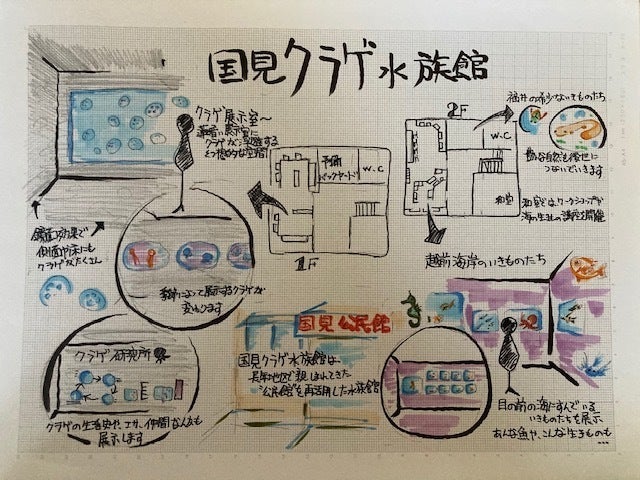 国見クラゲ水族館
クラゲ展示室～
薄暗い展示室に
クラゲが
幻想的な空間
鏡面効果で
側面や床にも
クラゲがたくさん
季節によって展示するクラゲが
変わります
予備
バックヤード
W.C
1F
2F
W.C
和室
福井の希少ないきものたち
豊かな自然を後世に
つないでいきます
和室ではワークショップや
海の生きもの講座を開催
越前海岸のいきものたち
クラゲ研究所
クラゲの生活史や、エサ、仲間なんかも
展示します
国見公民館
国見クラゲ水族館は、
長年地区で親しまれてきた
"公民館"を再活用した水族館
目の前の海にすんでいる
いきものたちを展示
あんな魚や、こんな生きものも